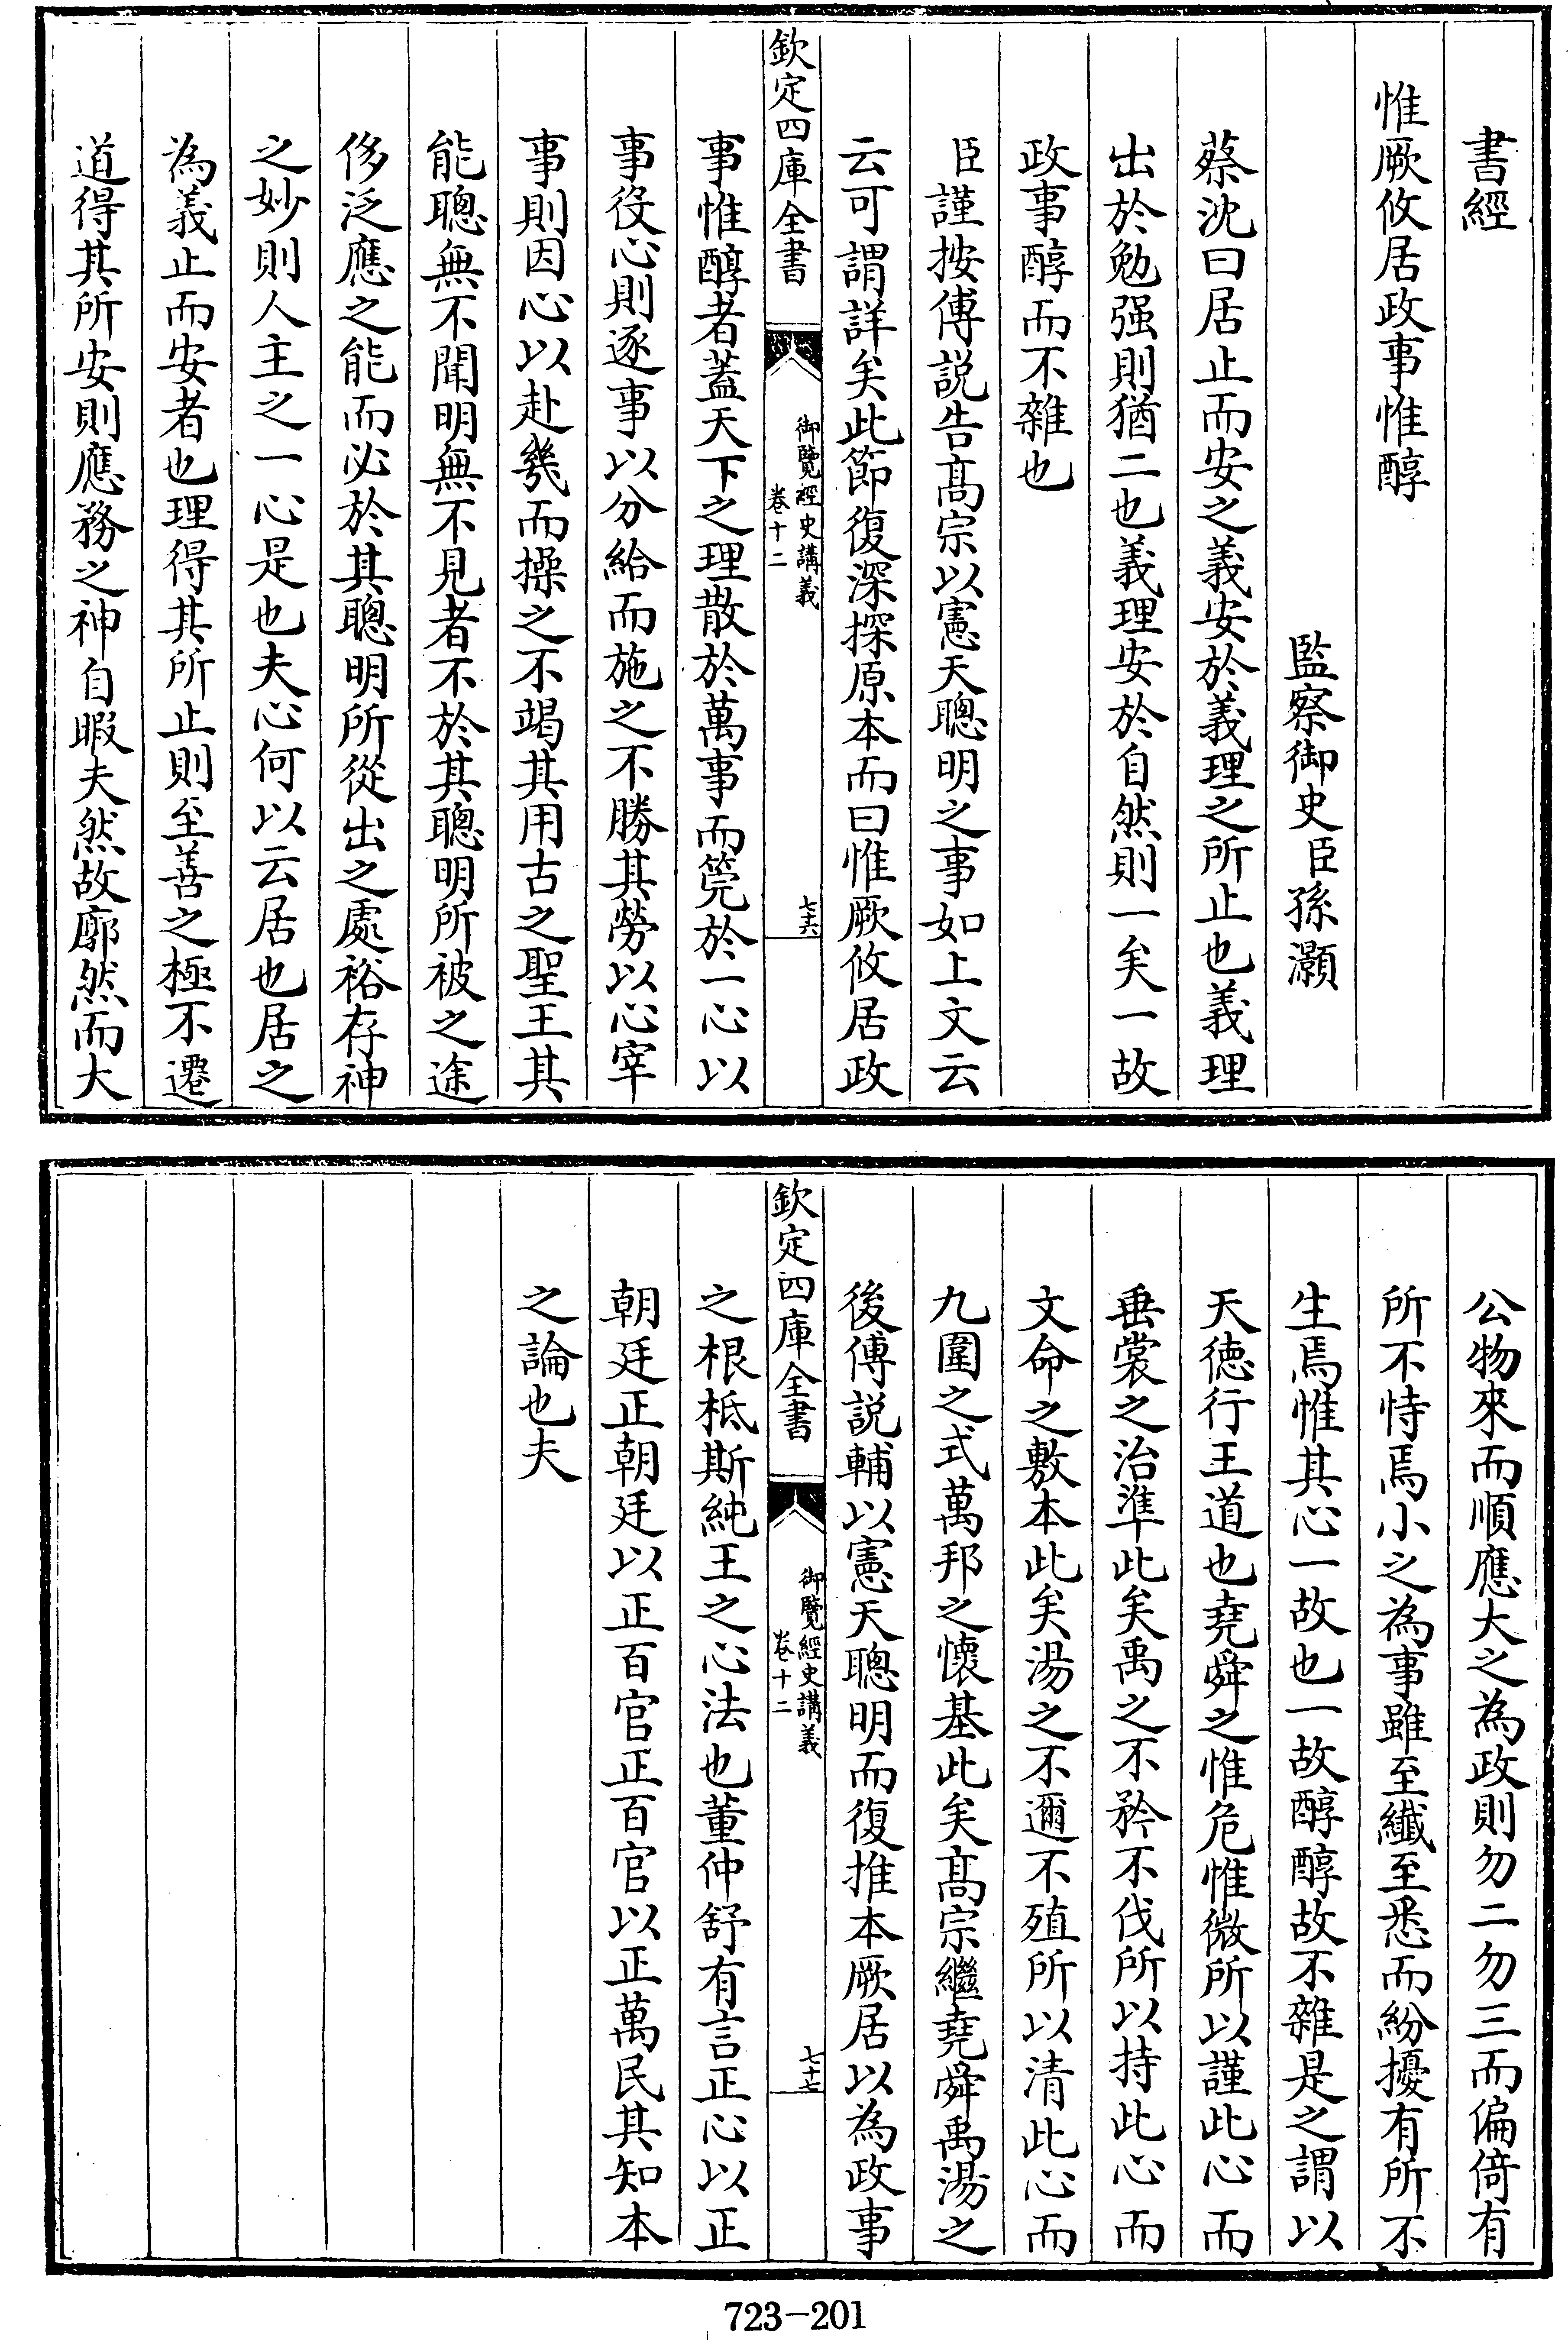 書經
惟厥攸居政事惟醇
監察御史臣孫灝
蔡沈曰居止而安之義安於義理之所止也義理
出於勉强則猶二也義理安於自然則一矣一故
政事醇而不雜也
臣謹按傅説告髙宗以憲天聰明之事如上文云
云可謂詳矣此節復深探原本而曰惟厥攸居政
欽定四庫全書
御覽經史講義
卷十二
七十六
事惟醇者蓋天下之理散於萬事而筦於一心以
事役心則逐事以分給而施之不勝其勞以心宰
事則因心以赴幾而操之不竭其用古之聖王其
能聰無不聞明無不見者不於其聰明所被之途
侈泛應之能而必於其聰明所從出之處裕存神
之妙則人主之一心是也夫心何以云居也居之
為義止而安者也理得其所止則至善之極不遷
道得其所安則應務之神自暇夫然故廓然而大
公物來而順應大之為政則勿二勿三而偏倚有
所不恃焉小之為事雖至纎至悉而紛擾有所不
生焉惟其心一故也一故醇醇故不雜是之謂以
天徳行王道也堯舜之惟危惟微所以謹此心而
垂裳之治準此矣禹之不矜不伐所以持此心而
文命之敷本此矣湯之不邇不殖所以清此心而
九圍之式萬邦之懷基此矣髙宗繼堯舜禹湯之
後傅説輔以憲天聰明而復推本厥居以為政事
欽定四庫全書
御覽經史講義
卷十二
七十七
之根柢斯純王之心法也董仲舒有言正心以正
朝廷正朝廷以正百官正百官以正萬民其知本
之論也夫
723-201